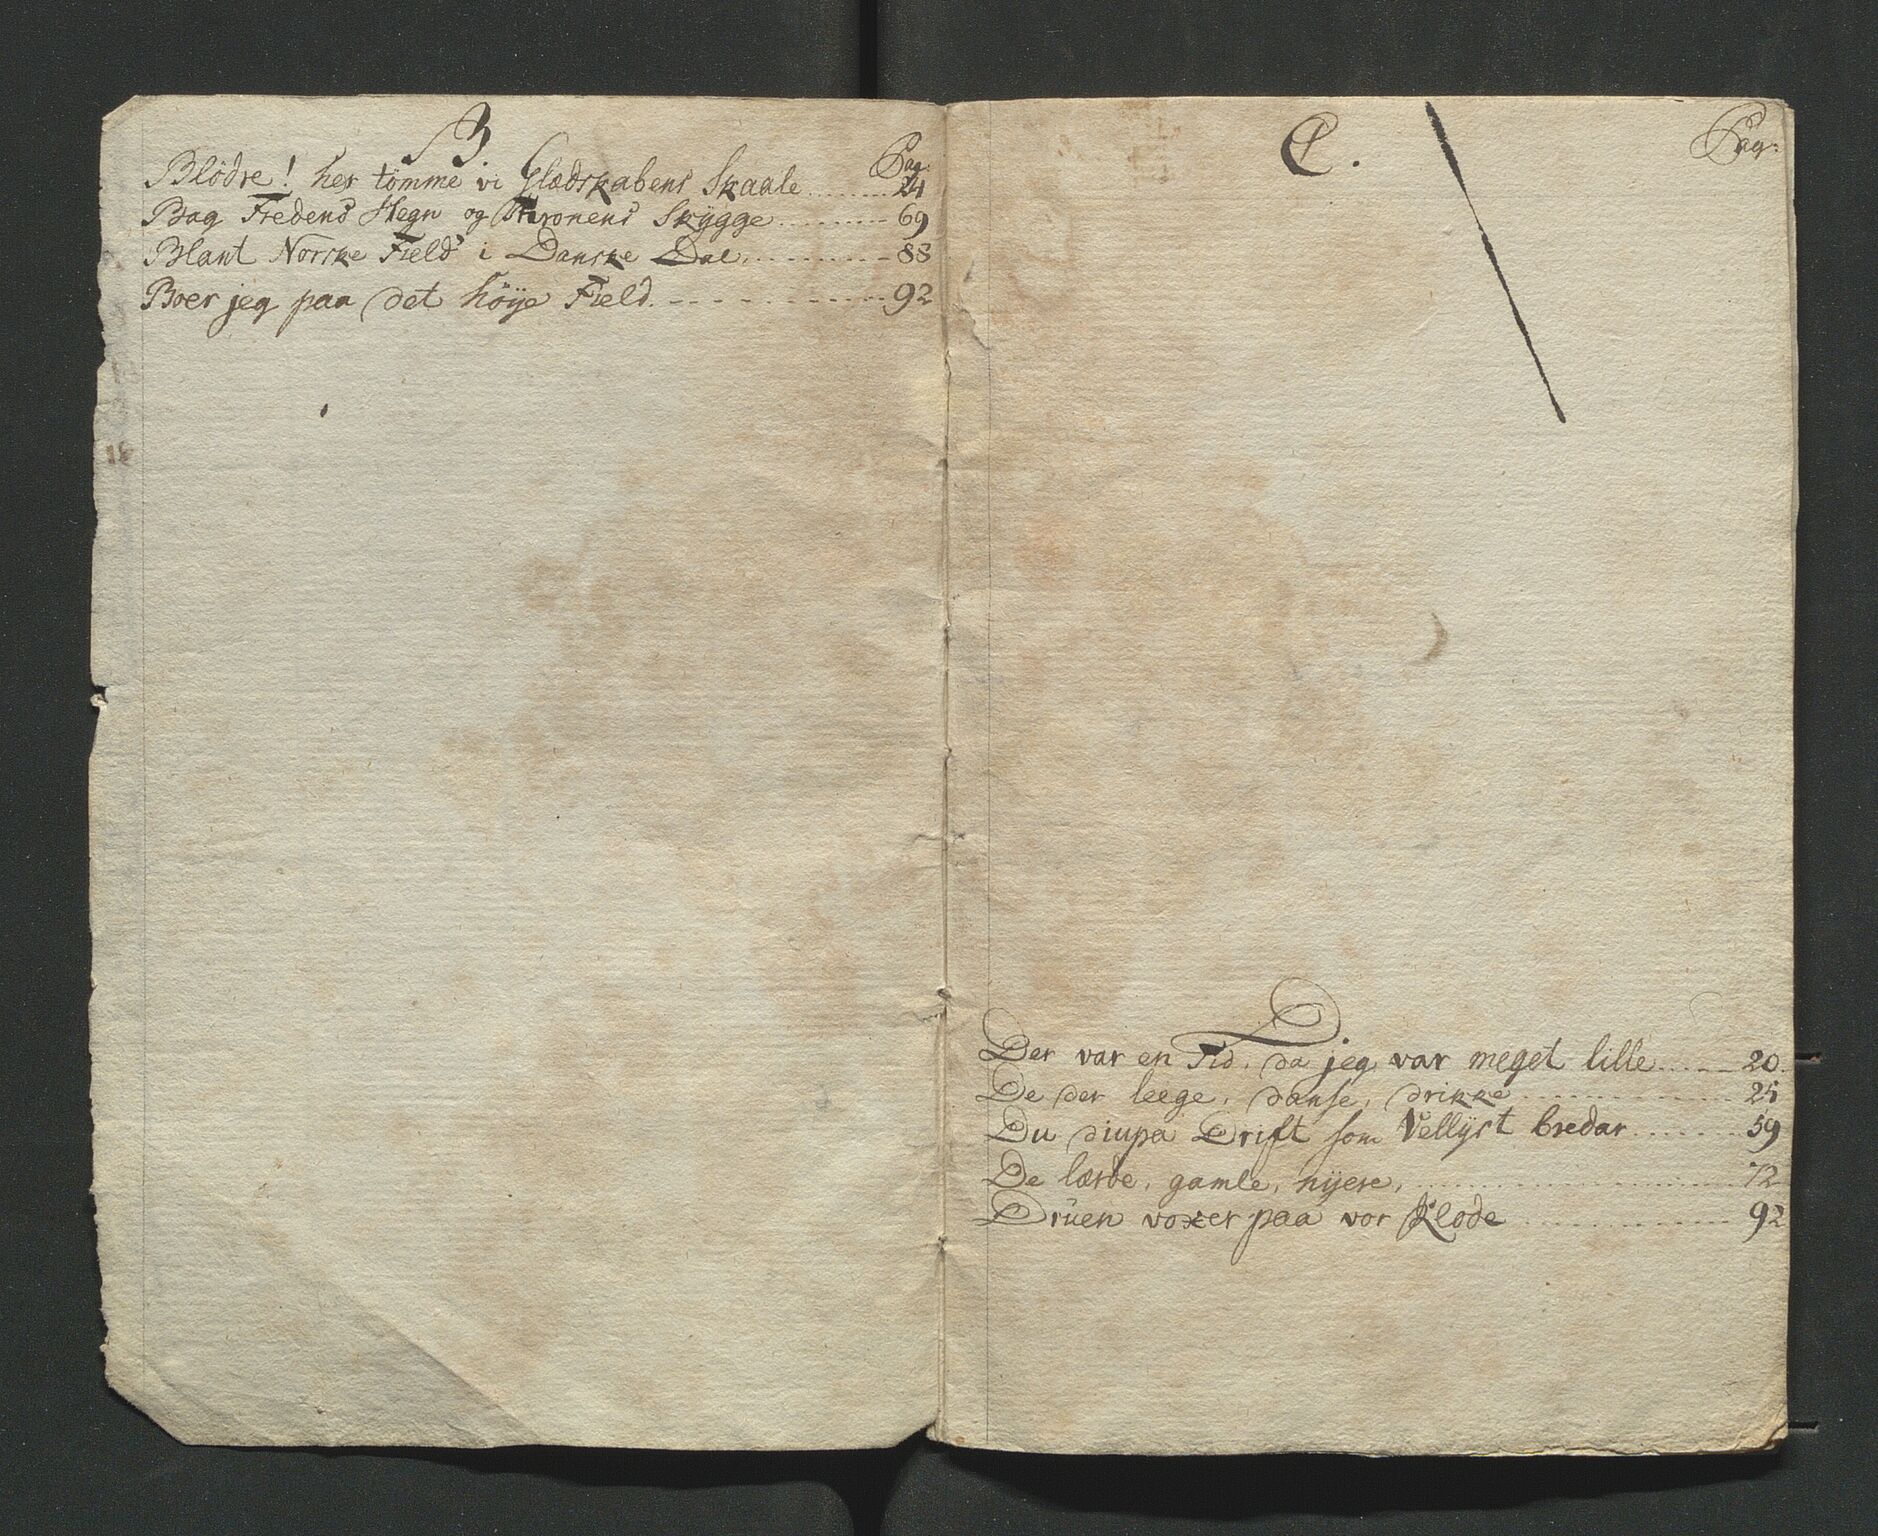 B
Pag:
Blödre! her tömme vi Glædskabens Skaale ........ 24
Bag Fredens Hegn og Thronens Skÿgge ........ 69
Blant Norske Field' i Danske Dal, ........ 88
Boer jeg paa det höÿe Field. ........ 92
C.
Pag:
D
Der var en Tid, da jeg var meget lille ..... 20.
De der leege, danse, drikke ........ 25
Du diupa Drift som Vellÿst bredar ....... 59
De lærde, gamle, nÿere, ........ 72
Drüen voxer paa vor Klode ........ 92